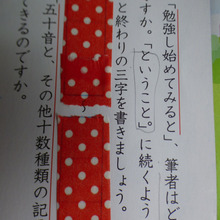 「勉強し始めてみると」、筆者はど
すか。「ということ。」に続くよう
と終わりの三字を書きましょう。
〜
五十音と、その他十数種類の記
できるのですか。